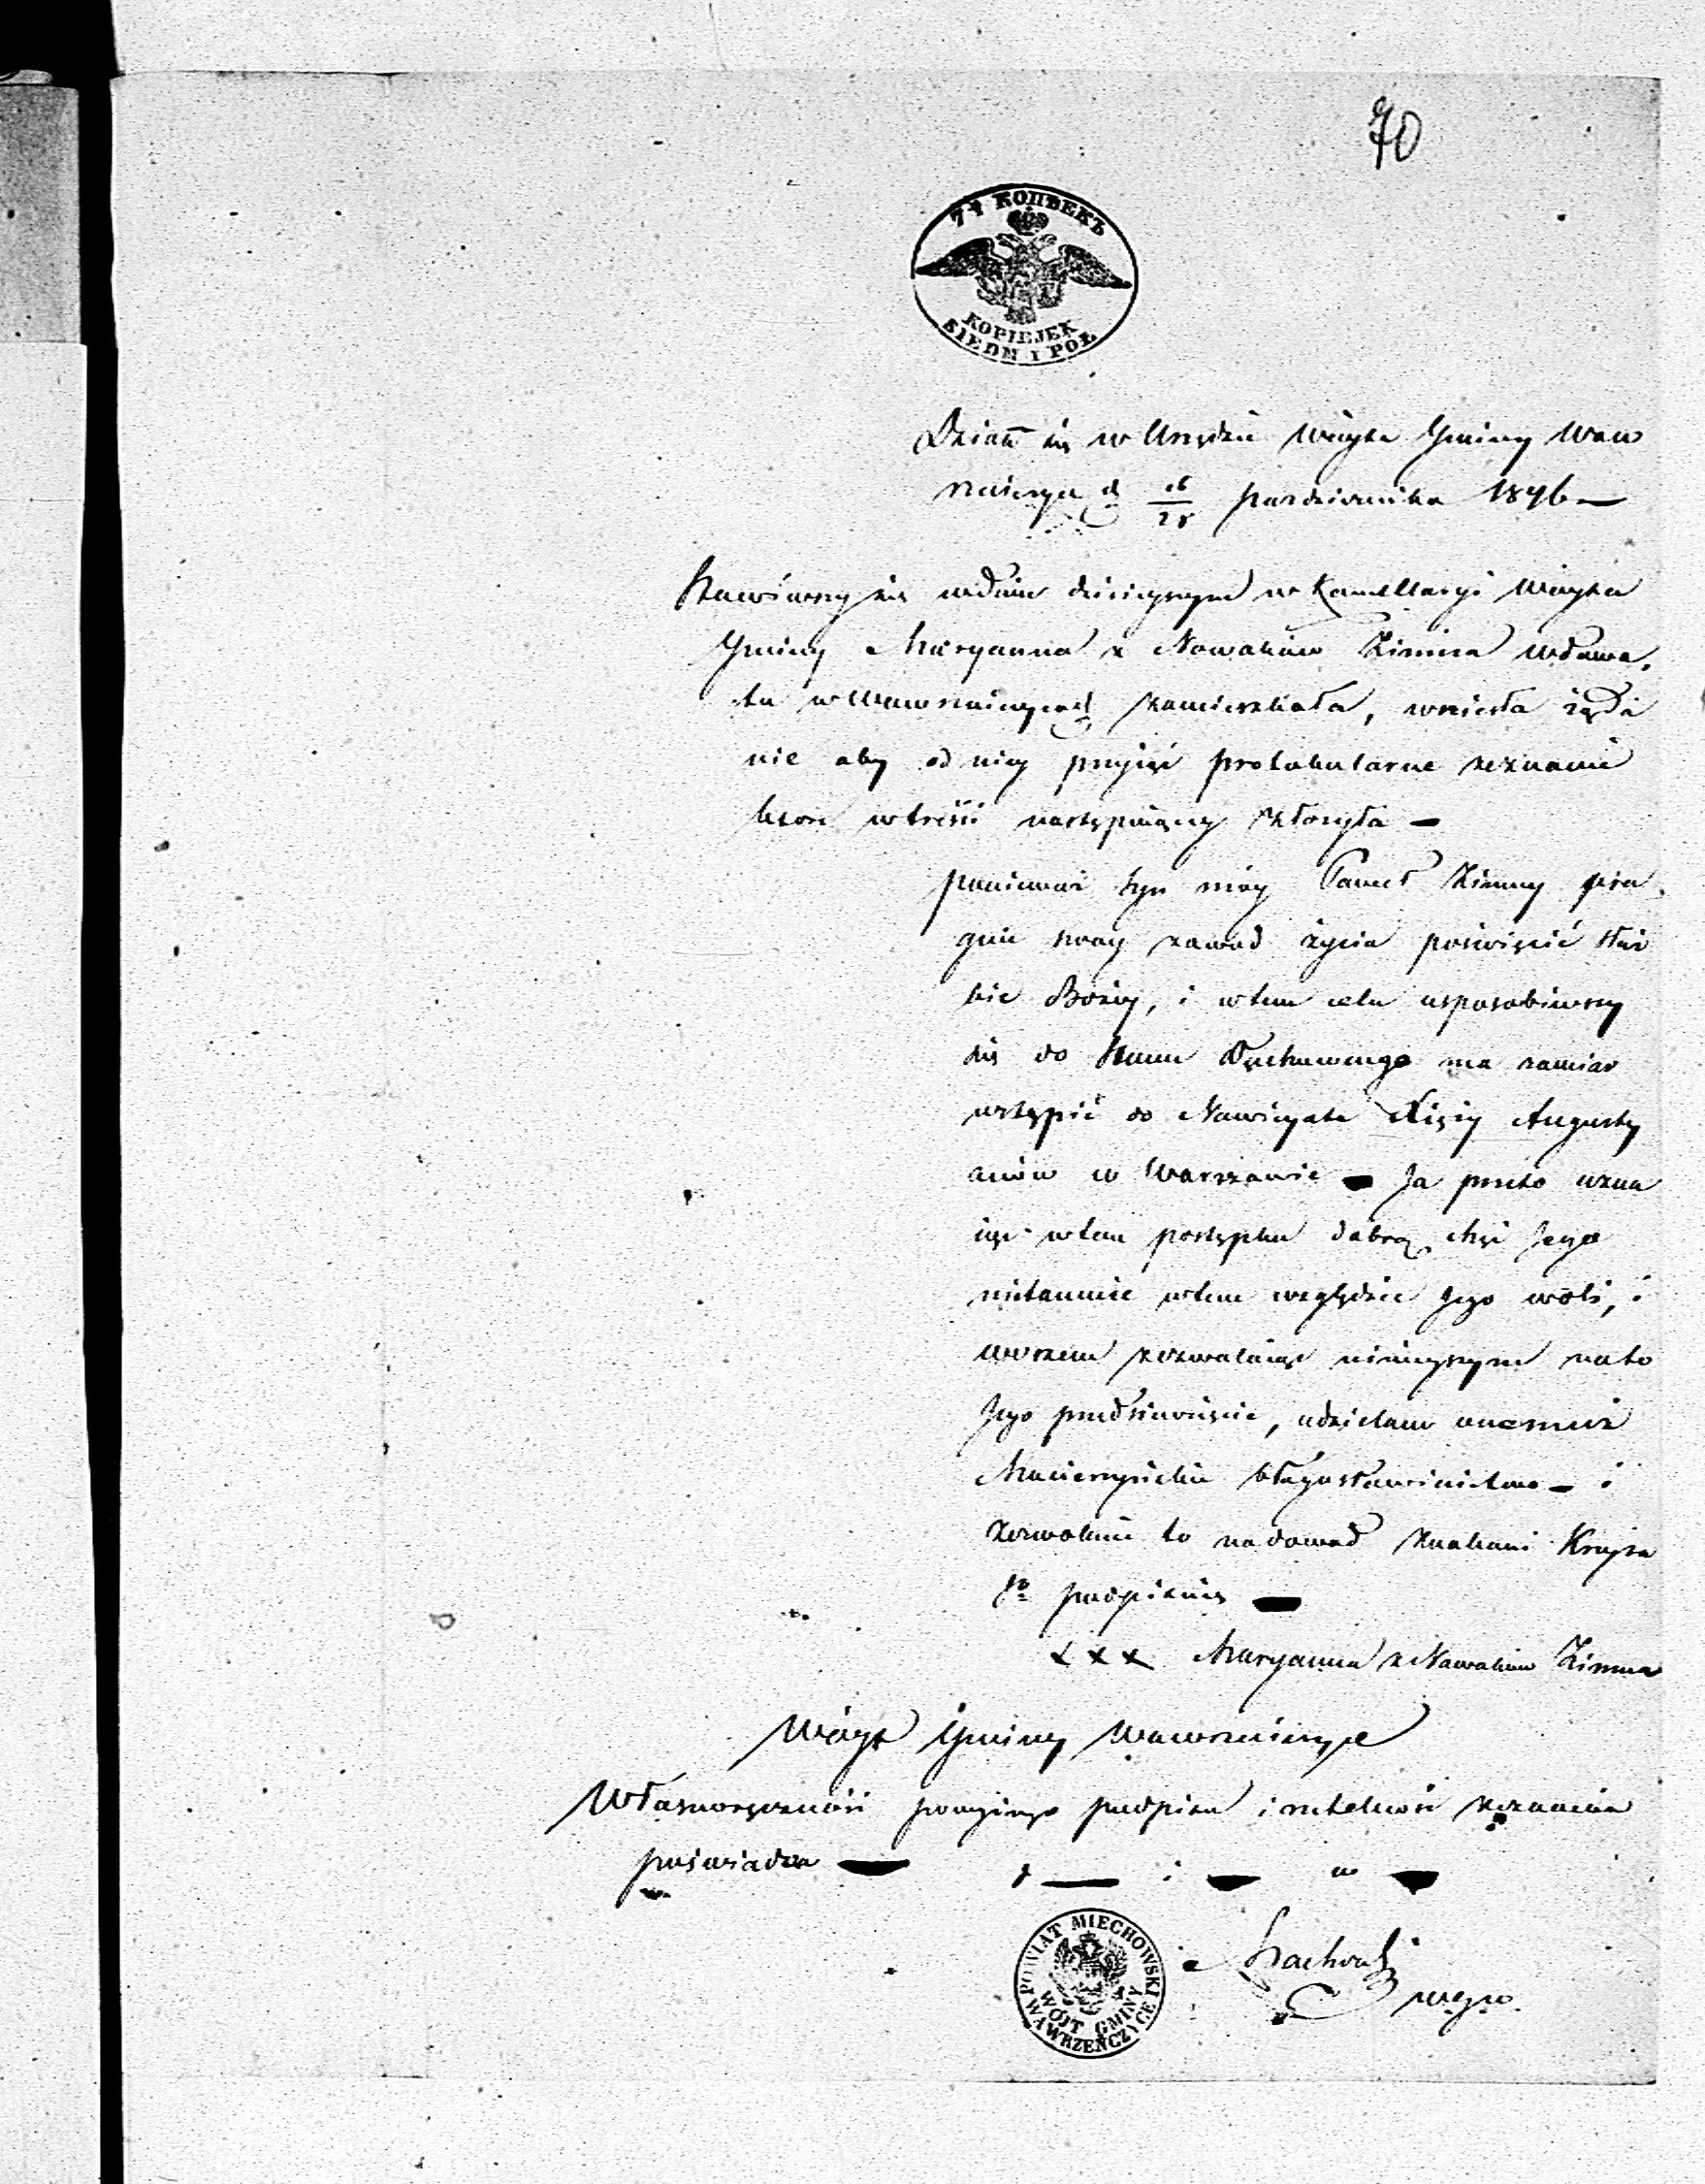 70
7½ КОПѢЕКЪ
KOPIEJEK
SIEDM I POŁ
Działo się w Urzędzie Wóyta Gminy Waw
rzeńczyce d 16/28 pazdziernika 1846 —
Stawiwszy się w dniu dzisieyszym w Kancellaryi Wóyta
Gminy Maryanna z Nowaków Zimna wdowa,
tu w Wawrzeńczycach zamieszkała, wniosła żąda
nie aby od niey przyiąć protokularne zeznanie
które w treści następuiącey złożyła —
ponieważ syn móy Paweł Zimny pra
gnie swoy zawod życia poświęcić służ
bie Bożey, i w tem celu usposobiwszy
się do Stanu Duchownego ma zamiar
wstąpić do Nowicyatu Xięży Augusty
anów w Warszawie — Ja przeto uzna
iąc w tem postępku dobrą chęć Jego
nietamuie w tem względzie Jego woli, i
owszem zezwalaiąc ninieyszym na to
Jego przedsiewzięcie, udzielam onemuż
Macierzyńskie błogosławieństwo — i
zezwolenie to na dowod znakami Krzyża
Sgo podpisuię —
x x x Maryanna z Nowaków Zimna
Wóyt Gminy Wawrzeńczyce
Własnoręczność powyższego podpisu i rzetelność zeznania
poświadcza —
POWIAT MIECHOWSKI
WÓJT GMINY
WAWRZEŃCZYCE